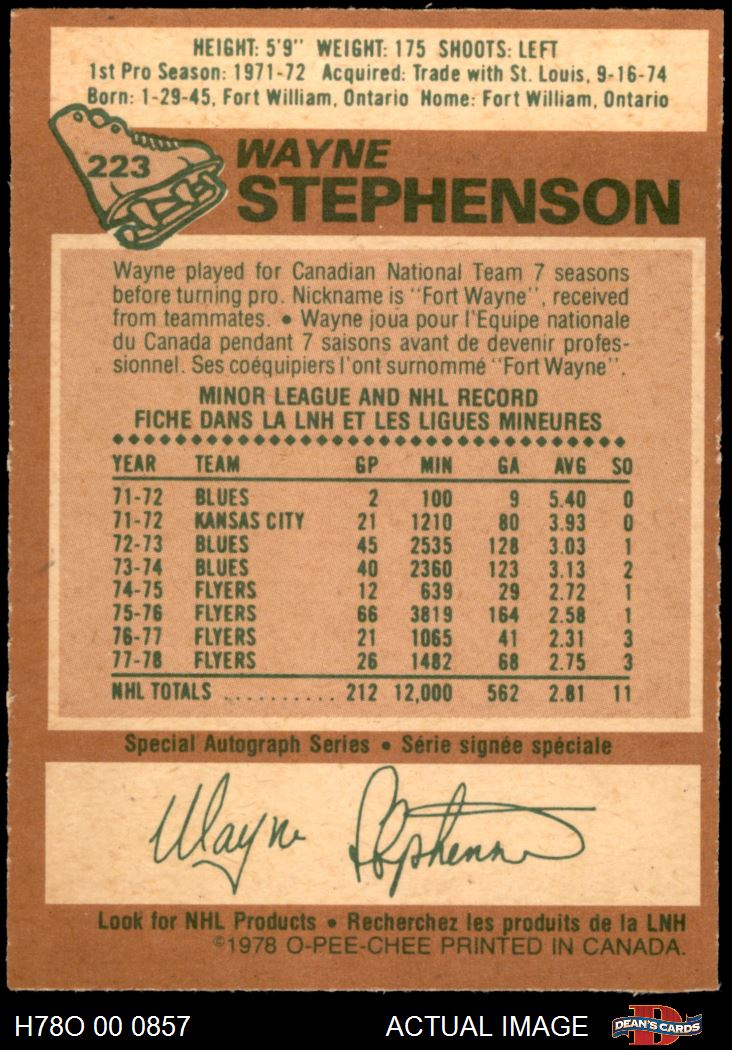 HEIGHT: 5'9" WEIGHT: 175 SHOOTS: LEFT
1st Pro Season: 1971-72 Acquired: Trade with St. Louis, 9-16-74
Born: 1-29-45, Fort William, Ontario Home: Fort William, Ontario
223
WAYNE
STEPHENSON
Wayne played for Canadian National Team 7 seasons
before turning pro. Nickname is "Fort Wayne", received
from teammates. • Wayne joua pour l'Equipe nationale
du Canada pendant 7 saisons avant de devenir profes-
sionnel. Ses coéquipiers l'ont surnommé "Fort Wayne".
MINOR LEAGUE AND NHL RECORD
FICHE DANS LA LNH ET LES LIGUES MINEURES
YEAR TEAM GP MIN GA AVG SO
71-72 BLUES 2 100 9 5.40 0
71-72 KANSAS CITY 21 1210 80 3.93 0
72-73 BLUES 45 2535 128 3.03 1
73-74 BLUES 40 2360 123 3.13 2
74-75 FLYERS 12 639 29 2.72 1
75-76 FLYERS 66 3819 164 2.58 1
76-77 FLYERS 21 1065 41 2.31 3
77-78 FLYERS 26 1482 68 2.75 3
NHL TOTALS .......... 212 12,000 562 2.81 11
Special Autograph Series • Série signée spéciale
Wayne Stephenson
Look for NHL Products • Recherchez les produits de la LNH
©1978 O-PEE-CHEE PRINTED IN CANADA.
H78O 00 0857 ACTUAL IMAGE DEAN'S CARDS